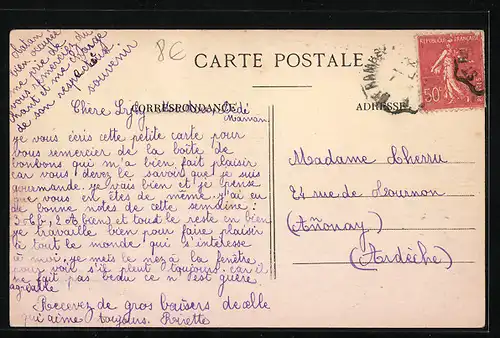 8€
CARTE POSTALE
CORRESPONDANCE
ADRESSE
RÉPUBLIQUE FRANÇAISE
50c
bien occupée
me prie de
vous remercier du
chant et me charge
de son respectueux
souvenir
Chère
Maman
je vous écris cette petite carte pour
vous remercier de la boîte de
bonbons qui m'a bien fait plaisir
car vous devez le savoir que je suis
gourmande. je vais bien et je pense
que vous en êtes de même. j'ai eu
de bonne notes de cette semaine :
et tout le reste en bien
je travaille bien pour faire plaisir
à tout le monde qui s'intéresse
à moi. je mets le nez à la fenêtre
pour voir s'il pleut toujours car il
ne fait pas beau ce n'est guère
agréable
Recevez de gros baisers de celle
qui aime toujours.
Madame Cherru
24 rue de Tournon
(Annonay)
(Ardèche)